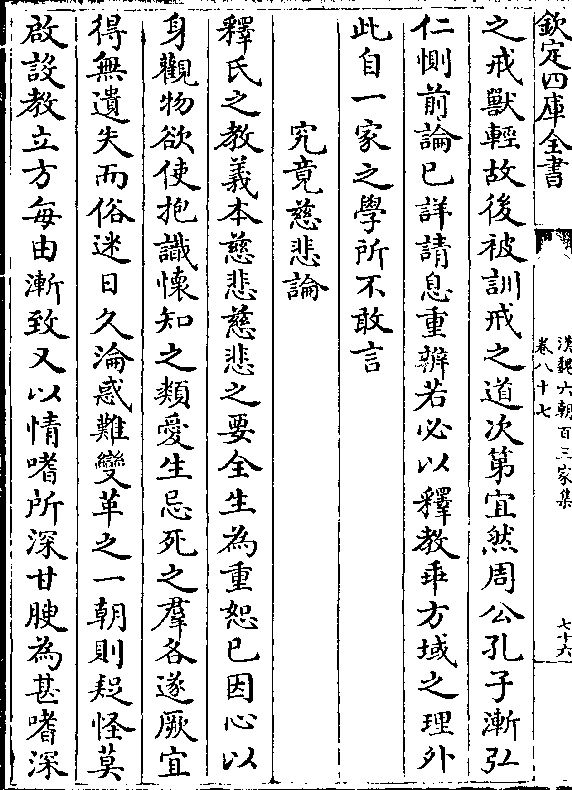 欽定四庫全書
漢魏六朝百三家集
卷八十七
七十六
之戒獸輕故後被訓戒之道次第宜然周公孔子漸弘
仁惻前論已詳請息重辨若必以釋教乖方域之理外
此自一家之學所不敢言
究竟慈悲論
釋氏之教義本慈悲慈悲之要全生為重恕己因心以
身觀物欲使抱識懷知之類愛生忌死之羣各遂厥宜
得無遺失而俗迷日久淪惑難變革之一朝則疑怪莫
啟設教立方每由漸致又以情嗜所深甘腴為甚嗜深